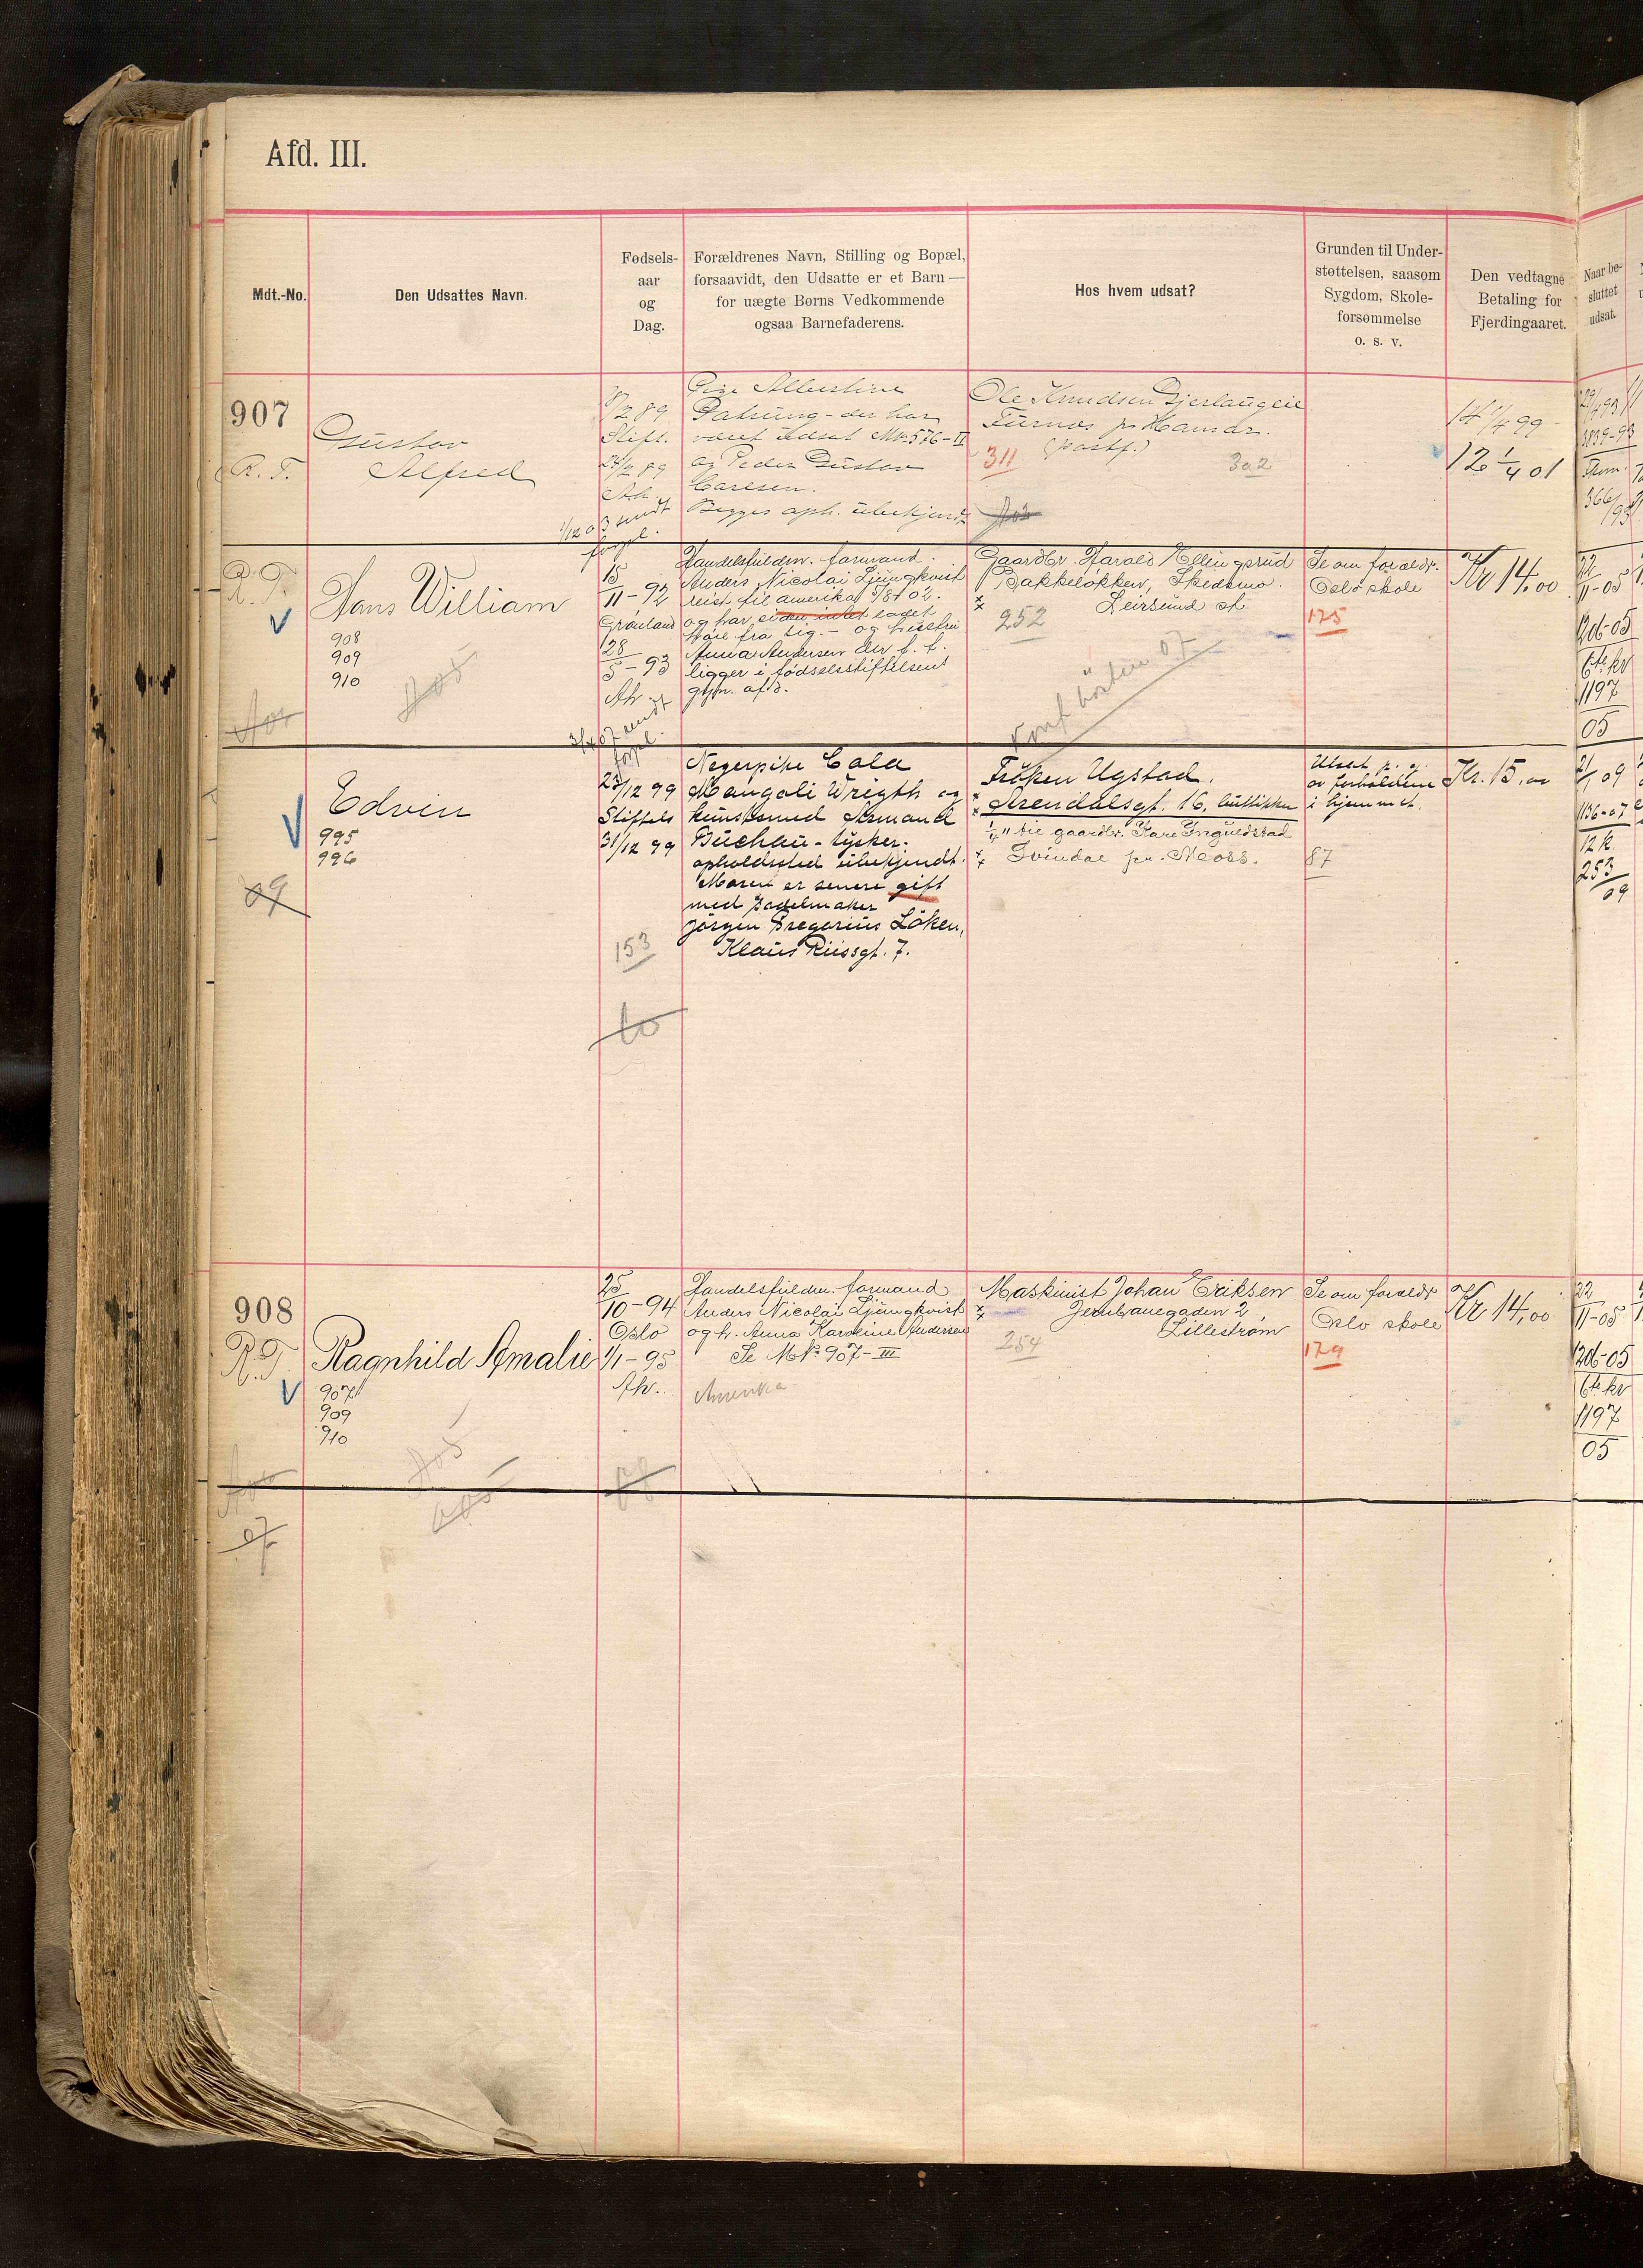 Afd. III.
Mdt.-No.
Den Udsattes Navn.
Fødsels-
aar
og
Dag.
Forældrenes Navn, Stilling og Bopæl,
forsaavidt, den Udsatte er et Barn —
for uægte Børns Vedkommende
ogsaa Barnefaderens.
Hos hvem udsat?
Grunden til Under-
støttelsen, saasom
Sygdom, Skole-
forsømmelse
o. s. v.
Den vedtagne
Betaling for
Fjerdingaaret.
Naar be-
sluttet
udsat.
907
R. T.
Gustav
Alfred
Stift.
Pige Albertine
der har
været udsat M№ 576-II
og Peder Gustav
Carlsen.
Begges oph. ubekjendt
Ole Knudsen
Furnæs pr Hamar.
(postf.)
311
302
14 1/4 99
12 1/4 01
Hans William
908
909
910
15
11-92
Grønland
28
5-93
Handelsfuldm. formand
Anders Nicolai Ljungkvist
reist til amerika
og har siden intet ladet
høre fra sig. - og hustru
Anna Andersen der f. t.
ligger i fødselsstiftelsens
gyn. afd.
Gaardbr. Harald Ellingsrud
Bakkeløkken, Skedsmo.
Leirsund st.
252
Se om foræld.
Oslo skole
175
Kr 14,00
22
11-05
1206-05
1197
05
Edvin
995
996
09
23/12 99
Stiftels
31/12 99
Negerpike Cala
Mangali Wrigth og
kunstsmed Armand
Buchau - tysker.
opholdssted ubekjendt.
Moren er senere gift
med sadelmaker
Jørgen Gregorius Løken,
Klaus Riisgt. 7.
153
Frøken Ugstad.
Arendalsgt. 16, butikken
Svindal pr. Moss.
87
Utsat p. g.
av forholdene
i hjemmet.
Kr. 15,00
1136-07
253
09
908
R. T.
Ragnhild Amalie
907
909
910
25
10-94
Oslo
1/1-95
Handelsfuldm. formand
Anders Nicolai Ljungkvist
og h. Anna Karoline Andersen
Se M№ 907-III
Amerika
Maskinist Johan Eriksen
Jernbanegaden 2
Lillestrøm
254
Se om foreldr
Oslo skole
179
Kr 14,00
22
11-05
1206-05
1197
05
07